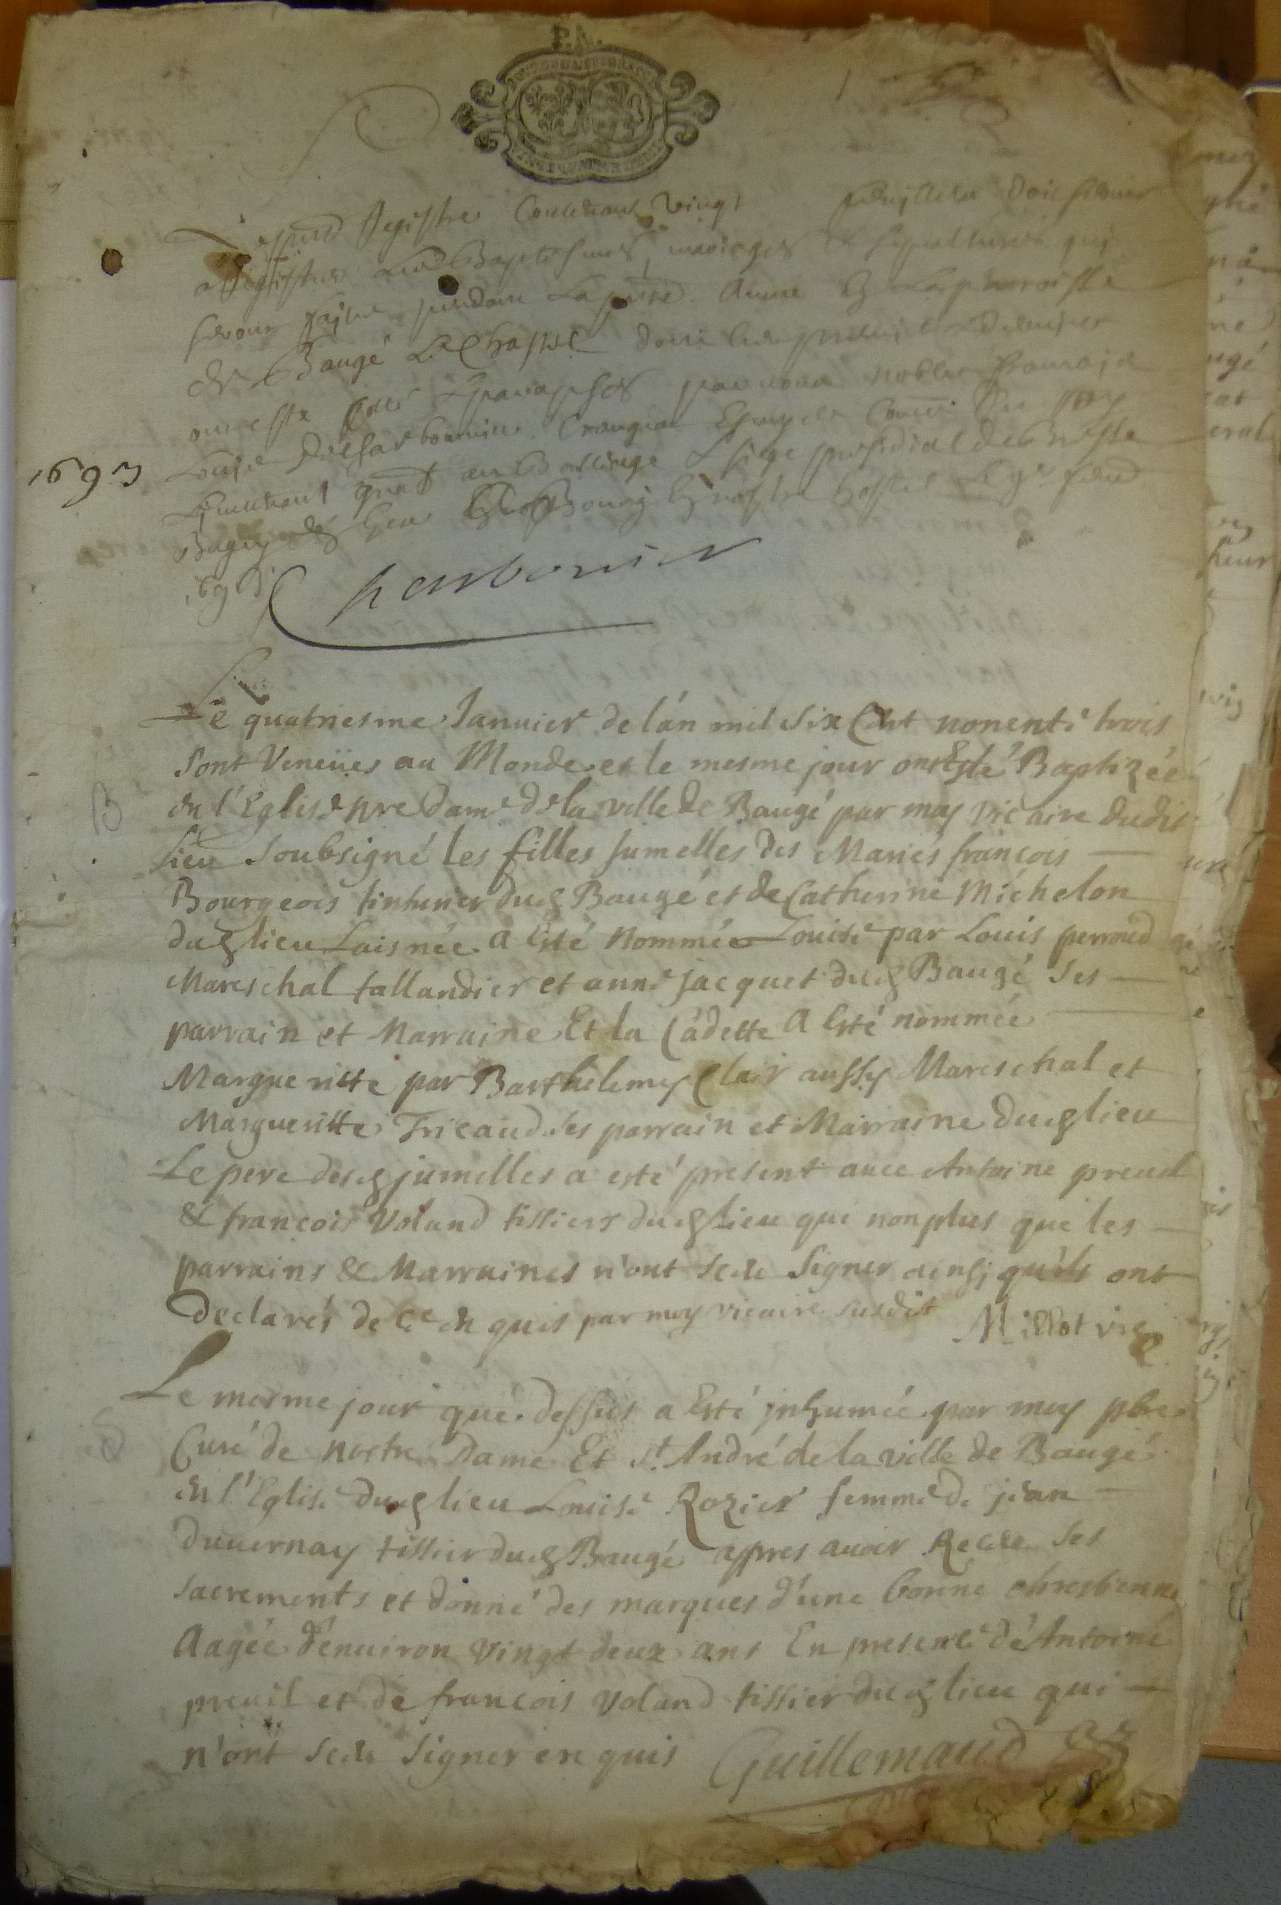 present Registre Contenant vingt feuilletz doit servir
a Registrer les Baptesmes, mariages & sepultures qui
seront faites pendant La presente Année En La parroisse
de Baugé Le Chastel dont les premier & dernier
ont esté par nous noble François
Louis de Charbonnier Crangeac Escuyer Conser du Roy
Lieutenant gnal au Bailliage & siege presidial de Bresse
Bugey & Gex Bourg En nostre hostel Le
1693
1693
Charbonier
Le quatriesme Januier de l'án mil six Cent nonente trois
sont Veneües au Monde et le mesme jour ont Esté Baptizée
en l'Eglise nre Dame de la ville de Baugé par moy vicaire dudit
lieu Soubsigné les filles jumelles des Mariés françois
Bourgeois tinturier dud Baugé et de Catherine Michelon
dud lieu Laisnée a Esté Nommée Louise par Louis perroud
Mareschal tallandier et anne jacquet dud Baugé ses
parrain et Marraine Et la Cadette a Esté nommée
Margueritte par Barthelemy Clair aussy Mareschal et
Margueritte Fricaud ses parrain et Marraine dud lieu
Le pere desd jumelles a esté present auec Antoine preuil
& francois Voland tissiers dud Lieu qui non plus que les
parrains & Marraines n'ont sceu signer ainsi qu'ils ont
declarés de Ce en quis par moy vicaire susdit
B
Le mesme jour que dessus a Esté inhumée par moy pbre
Curé de nostre Dame Et St André de la ville de Baugé
en l'Eglise dud lieu Louise Rozier femme de jean
duuernay tissier dud Baugé apres auoir Receu ses
sacrements et donné des marques d'une bonne chrestienne
Aagée d'enuiron vingt deux ans En presence de Antoine
preuil et de françois voland tissier dud lieu qui
n'ont sceu signer en quis Guillemaud